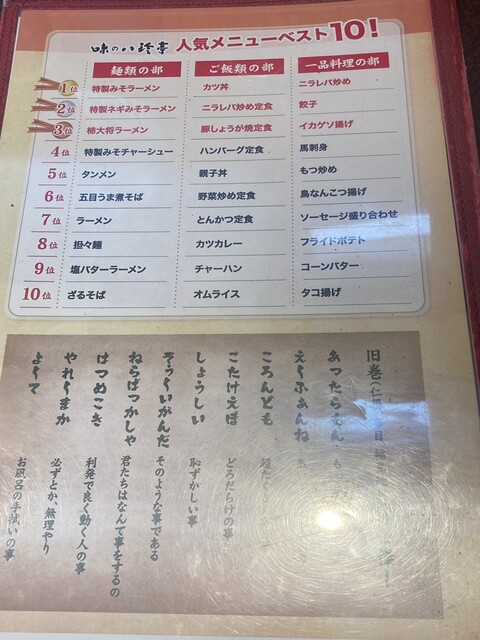 味の八珍亭 人気メニューベスト10!
麺類の部 ご飯類の部 一品料理の部
1位 特製みそラーメン カツ丼 ニラレバ炒め
2位 特製ネギみそラーメン ニラレバ炒め定食 餃子
3位 柿大将ラーメン 豚しょうが焼定食 イカゲソ揚げ
4位 特製みそチャーシュー ハンバーグ定食 馬刺身
5位 タンメン 親子丼 もつ炒め
6位 五目うま煮そば 野菜炒め定食 鳥なんこつ揚げ
7位 ラーメン とんかつ定食 ソーセージ盛り合わせ
8位 担々麺 カツカレー フライドポテト
9位 塩バターラーメン チャーハン コーンバター
10位 ざるそば オムライス タコ揚げ
旧巻
あったらもん
え〜ふあんね
ころんども
こたけえぼ どろだらけの事
しょうしい 恥ずかしい事
そういがんだ そのような事である
ねらばっかしゃ 君たちはなんて事をするの
はつめこき 利発で良く動く人の事
やれ〜まか 必ずとか、無理やり
よ〜て お風呂の手拭いの事